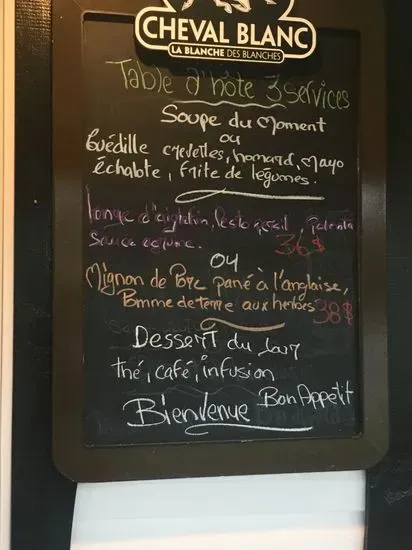 CHEVAL BLANC
LA BLANCHE DES BLANCHES
Table d'hôte 3 services
Soupe du Moment
ou
Guédille crevettes, homard, Mayo
échalote, frite de légumes.
Longe d'aiglefin, Pesto
sauce 36$
OU
Mignon de Porc pané à l'anglaise,
Pomme de terre aux herbes 38$
Dessert du jour
thé, café, infusion
Bienvenue Bon Appétit